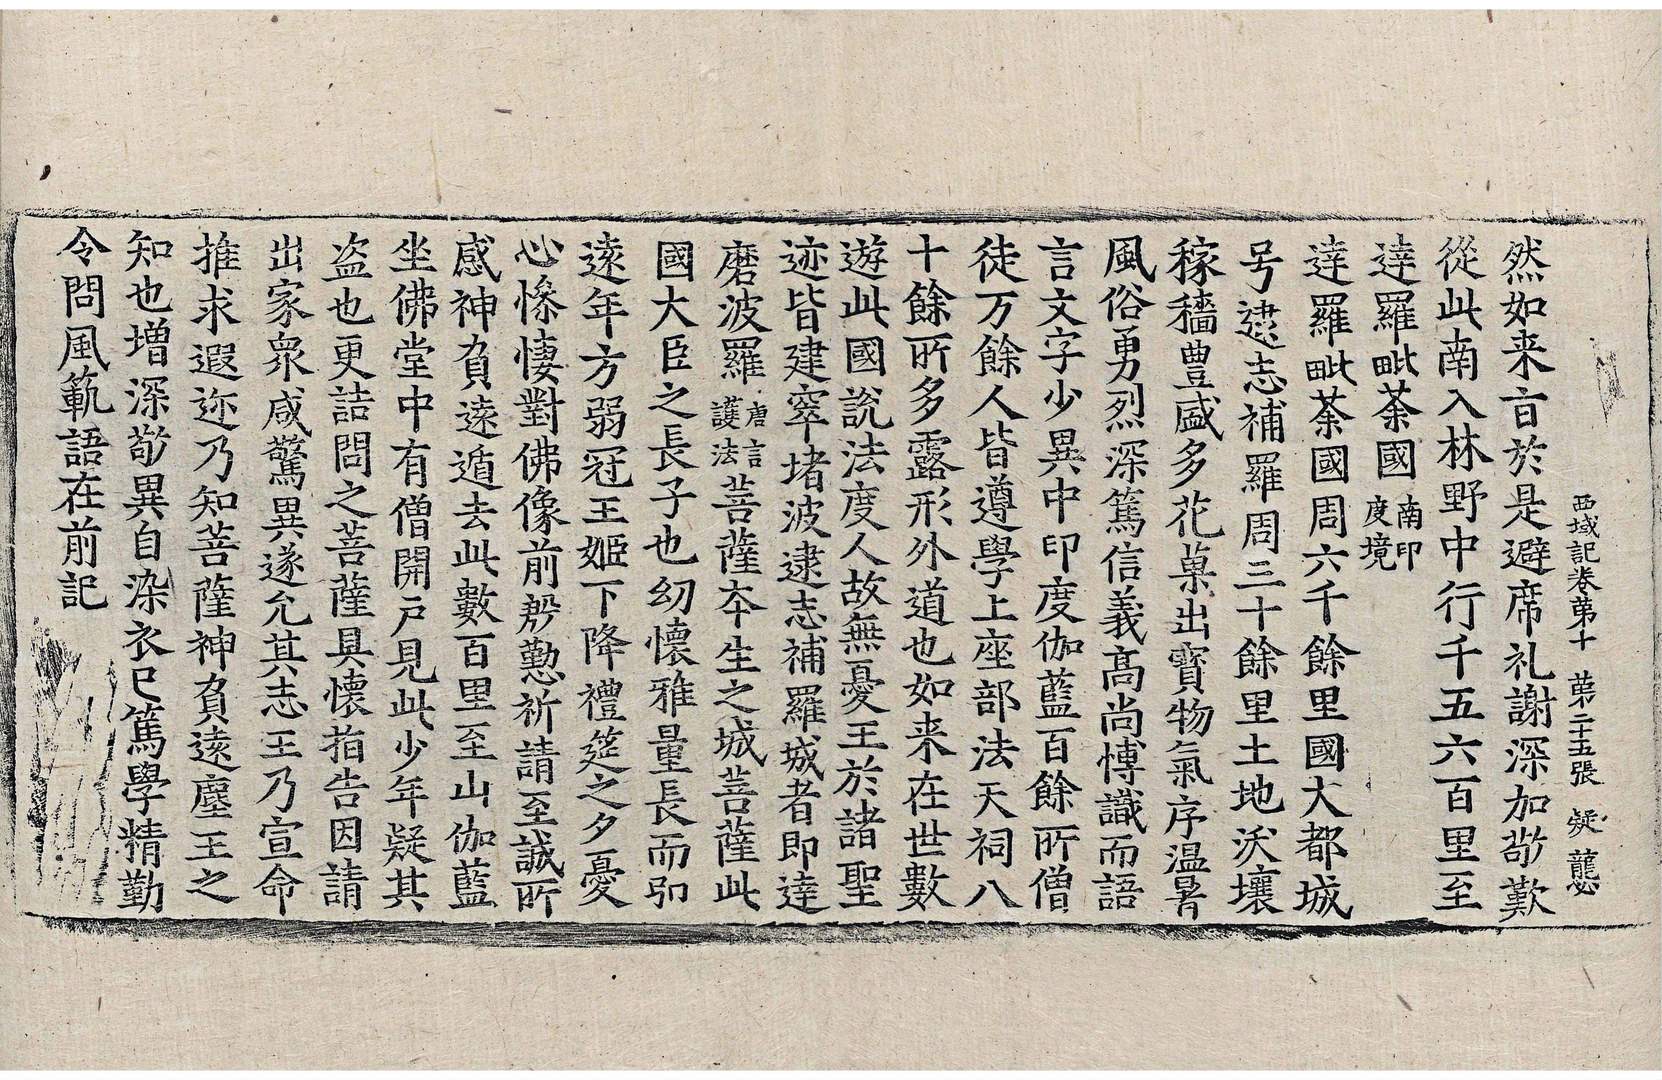 西域記卷第十　第二十五張　疑　龔
然如来言於是避席礼謝深加敬歎
從此南入林野中行千五六百里至
達羅毗荼國南印度境
達羅毗荼國周六千餘里國大都城
号逮志補羅周三十餘里土地沃壤
稼穡豊盛多花菓出寶物氣序温暑
風俗勇烈深篤信義髙尚愽識而語
言文字少異中印度伽藍百餘所僧
徒万餘人皆遵學上座部法天祠八
十餘所多露形外道也如来在世數
遊此國説法度人故無憂王於諸聖
迹皆建窣堵波逮志補羅城者即達
磨波羅唐言護法菩薩本生之城菩薩此
國大臣之長子也幼懷雅量長而弘
遠年方弱冠王姬下降禮筵之夕憂
心慘悽對佛像前慇懃祈請至誠所
感神負遠遁去此數百里至山伽藍
坐佛堂中有僧開戸見此少年疑其
盗也更詰問之菩薩具懷指告因請
出家衆咸驚異遂允其志王乃宣命
推求遐迩乃知菩薩神負遠塵王之
知也増深敬異自染衣已篤學精勤
令問風範語在前記